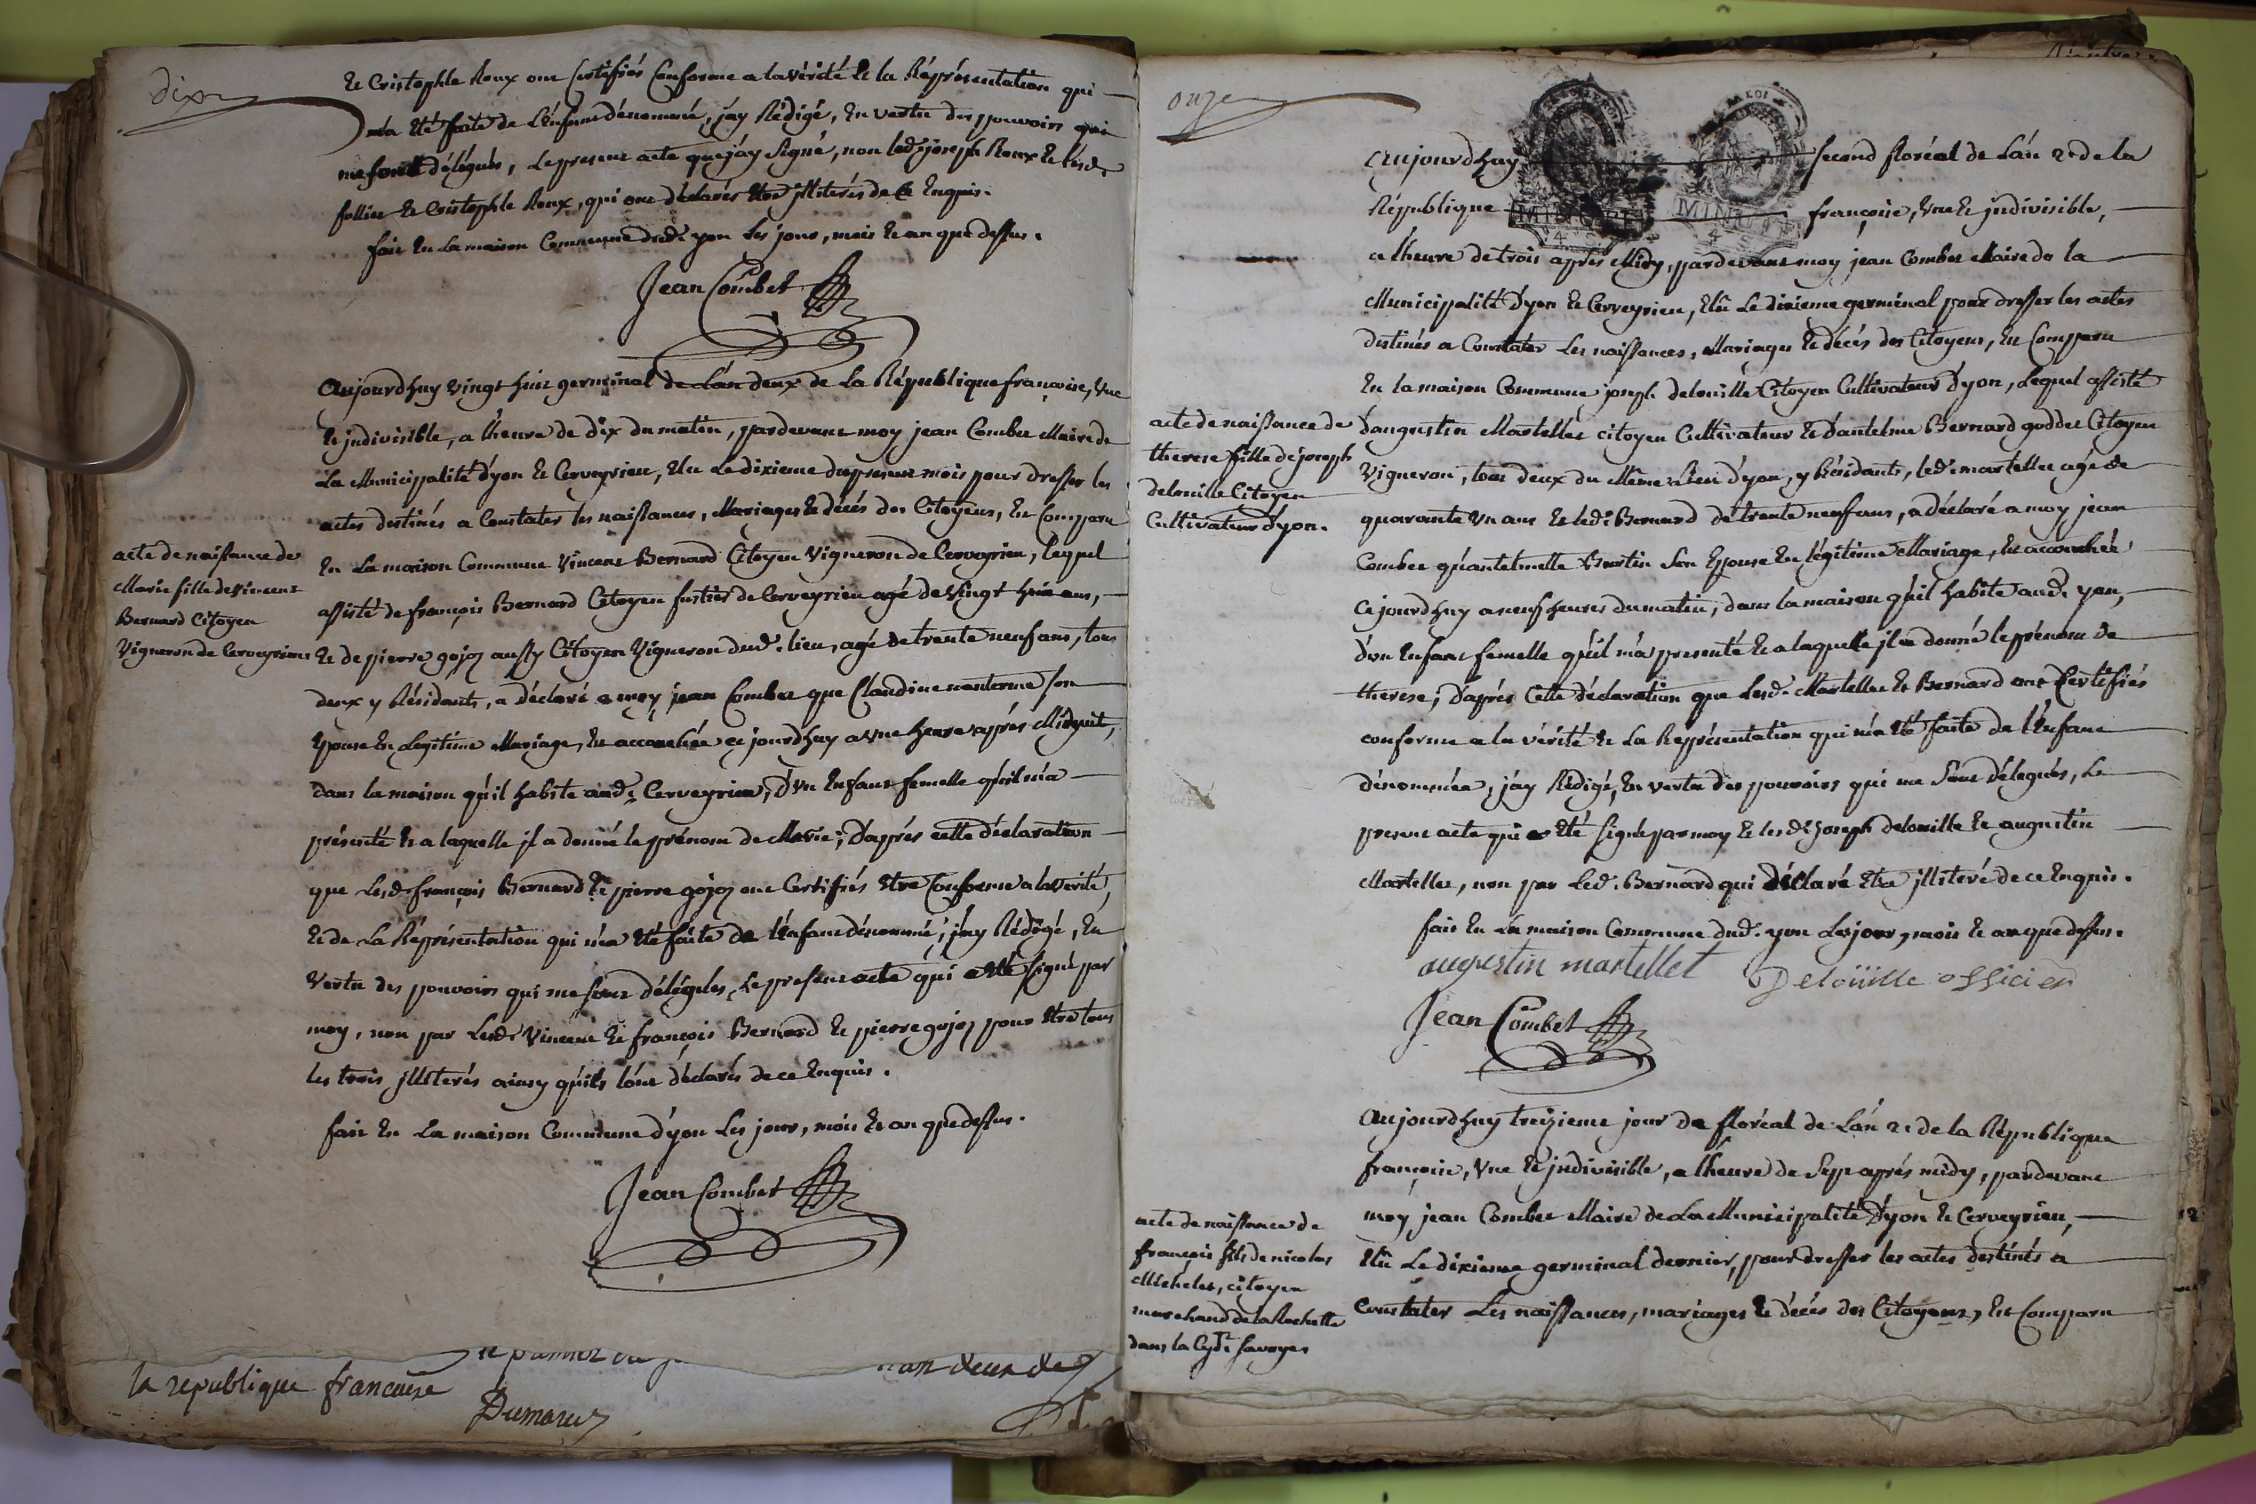 dix
Et Cristophle Roux ont Certifiés Conforme a la vérité Et la Réprésentation qui
m'a Eté faite de L'Enfant dénommé, j'ay Rédigé, En vertu des pouvoirs qui
me sont délégués, Le present acte que j'ay Signé, non led. joseph Roux Et lesd.
follier Et Cristophle Roux, qui ont déclarés Etre jlliterés de ce Enquis.
fait En La maison Commune dud. yon Les jour, mois Et an que dessus.
Jean Combet
Aujourdhuy vingt huit germinal de L'an deux de La République françoise, Une
Et jndivisible, a l'heure de dix du matin, pardevant moy jean Combet Maire de
La Municipalité d'yon Et Cerveyrieu, Elu Le dixieme du present mois pour dresser les
actes destinés a Constater les naissances, Mariages Et décés des Citoyens, Est Comparu
acte de naissance de
Marie fille de Vincent
Bernard Citoyen
Vigneron de Cerveyrieu
En La maison Commune Vincent Bernard Citoyen Vigneron de Cerveyrieu, lequel
assisté de françois Bernard Citoyen fustier de Cerveyrieu agé de Vingt huit ans,
Et de pierre gojoz aussy Citoyen Vigneron dud. lieu, agé de trente neuf ans, tous
deux y Résidants, a déclaré a moy jean Combet que Claudine nanterme son
Epouse En Legitime Mariage, Est accouchée ce jourdhuy a une heure après Minuit,
dans la maison qu'il habite aud. Cerveyrieu, d'Un Enfant femelle qu'il m'a
présenté Et a laquelle jl a donné le prénom de Marie; d'après cette déclaration
que Lesd. françois Bernard Et pierre gojoz ont Certifiés Etre Conforme a la vérité,
Et de La Réprésentation qui m'a Eté faite de l'Enfant dénommé, j'ay Rédigé, En
Vertu des pouvoirs qui me sont délégués, Le present acte qui a Eté signé par
moy, non par Lesd. Vincent Et françois Bernard Et pierre gojoz pour Etre tous
les trois jlliterés ainsy qu'ils l'ont déclarés de ce Enquis.
fait En La maison Commune d'yon Les jour, mois Et an que dessus.
Jean Combet
l'an deux de
la republique francaise
Dumarez
onze
Aujourdhuy second floréal de L'an 2e de la
République françoise, Une Et jndivisible,
a l'heure de trois après Midy, pardevant moy jean Combet Maire de la
Municipalité d'yon Et Cerveyrieu, Elû Le dixieme germinal pour dresser les actes
destinés a Constater Les naissances, Mariages Et décés des Citoyens, Est Comparu
En la maison Commune joseph delouille Citoyen Cultivateur d'yon, Lequel assisté
acte de naissance de
therese fille de joseph
delouille Citoyen
Cultivateur d'yon.
d'augustin Martellet citoyen Cultivateur Et d'antelme Bernard goddet Citoyen
Vigneron, tous deux du Même Lieu d'yon, y Résidants, led. martellet agé de
quarante un ans Et led. Bernard de trente neuf ans, a déclaré a moy jean
Combet qu'antelmette Burtin Son Epouse En légitime Mariage, Est accouchée
ce jourdhuy a neuf heures du matin, dans la maison qu'il habite aud. yon,
d'un Enfant femelle qu'il m'a presenté Et a laquelle jl a donné le prénom de
therese; d'après Cette déclaration que Lesd. Martellet Et Bernard ont Certifiés
conforme a la vérité Et La Représentation qui m'a Eté faite de l'Enfant
dénommée, j'ay Rédigé, En vertu des pouvoirs qui me Sont délegués, Le
present acte qui a Eté Signé par moy Et les d. Joseph delouille Et augustin
Martellet, non par Led. Bernard qui a déclaré Etre jlliteré de ce Enquis.
fait En La maison Commune dud. yon Les jour, mois Et an que dessus.
augustin martellet Deloüille officier
Jean Combet
Aujourdhuy treizieme jour de floréal de L'an 2e de la République
françoise, Une Et jndivisible, a l'heure de Sept après midy, pardevant
acte de naissance de
françois fils de nicolas
Michelet, citoyen
marchand de la Rochette
dans la Cydt Savoye
moy jean Combet Maire de La Municipalité d'yon Et Cerveyrieu,
Elû Le dixieme germinal dernier, pour dresser les actes destinés a
Constater Les naissances, mariages Et décés des Citoyens, Est Comparu